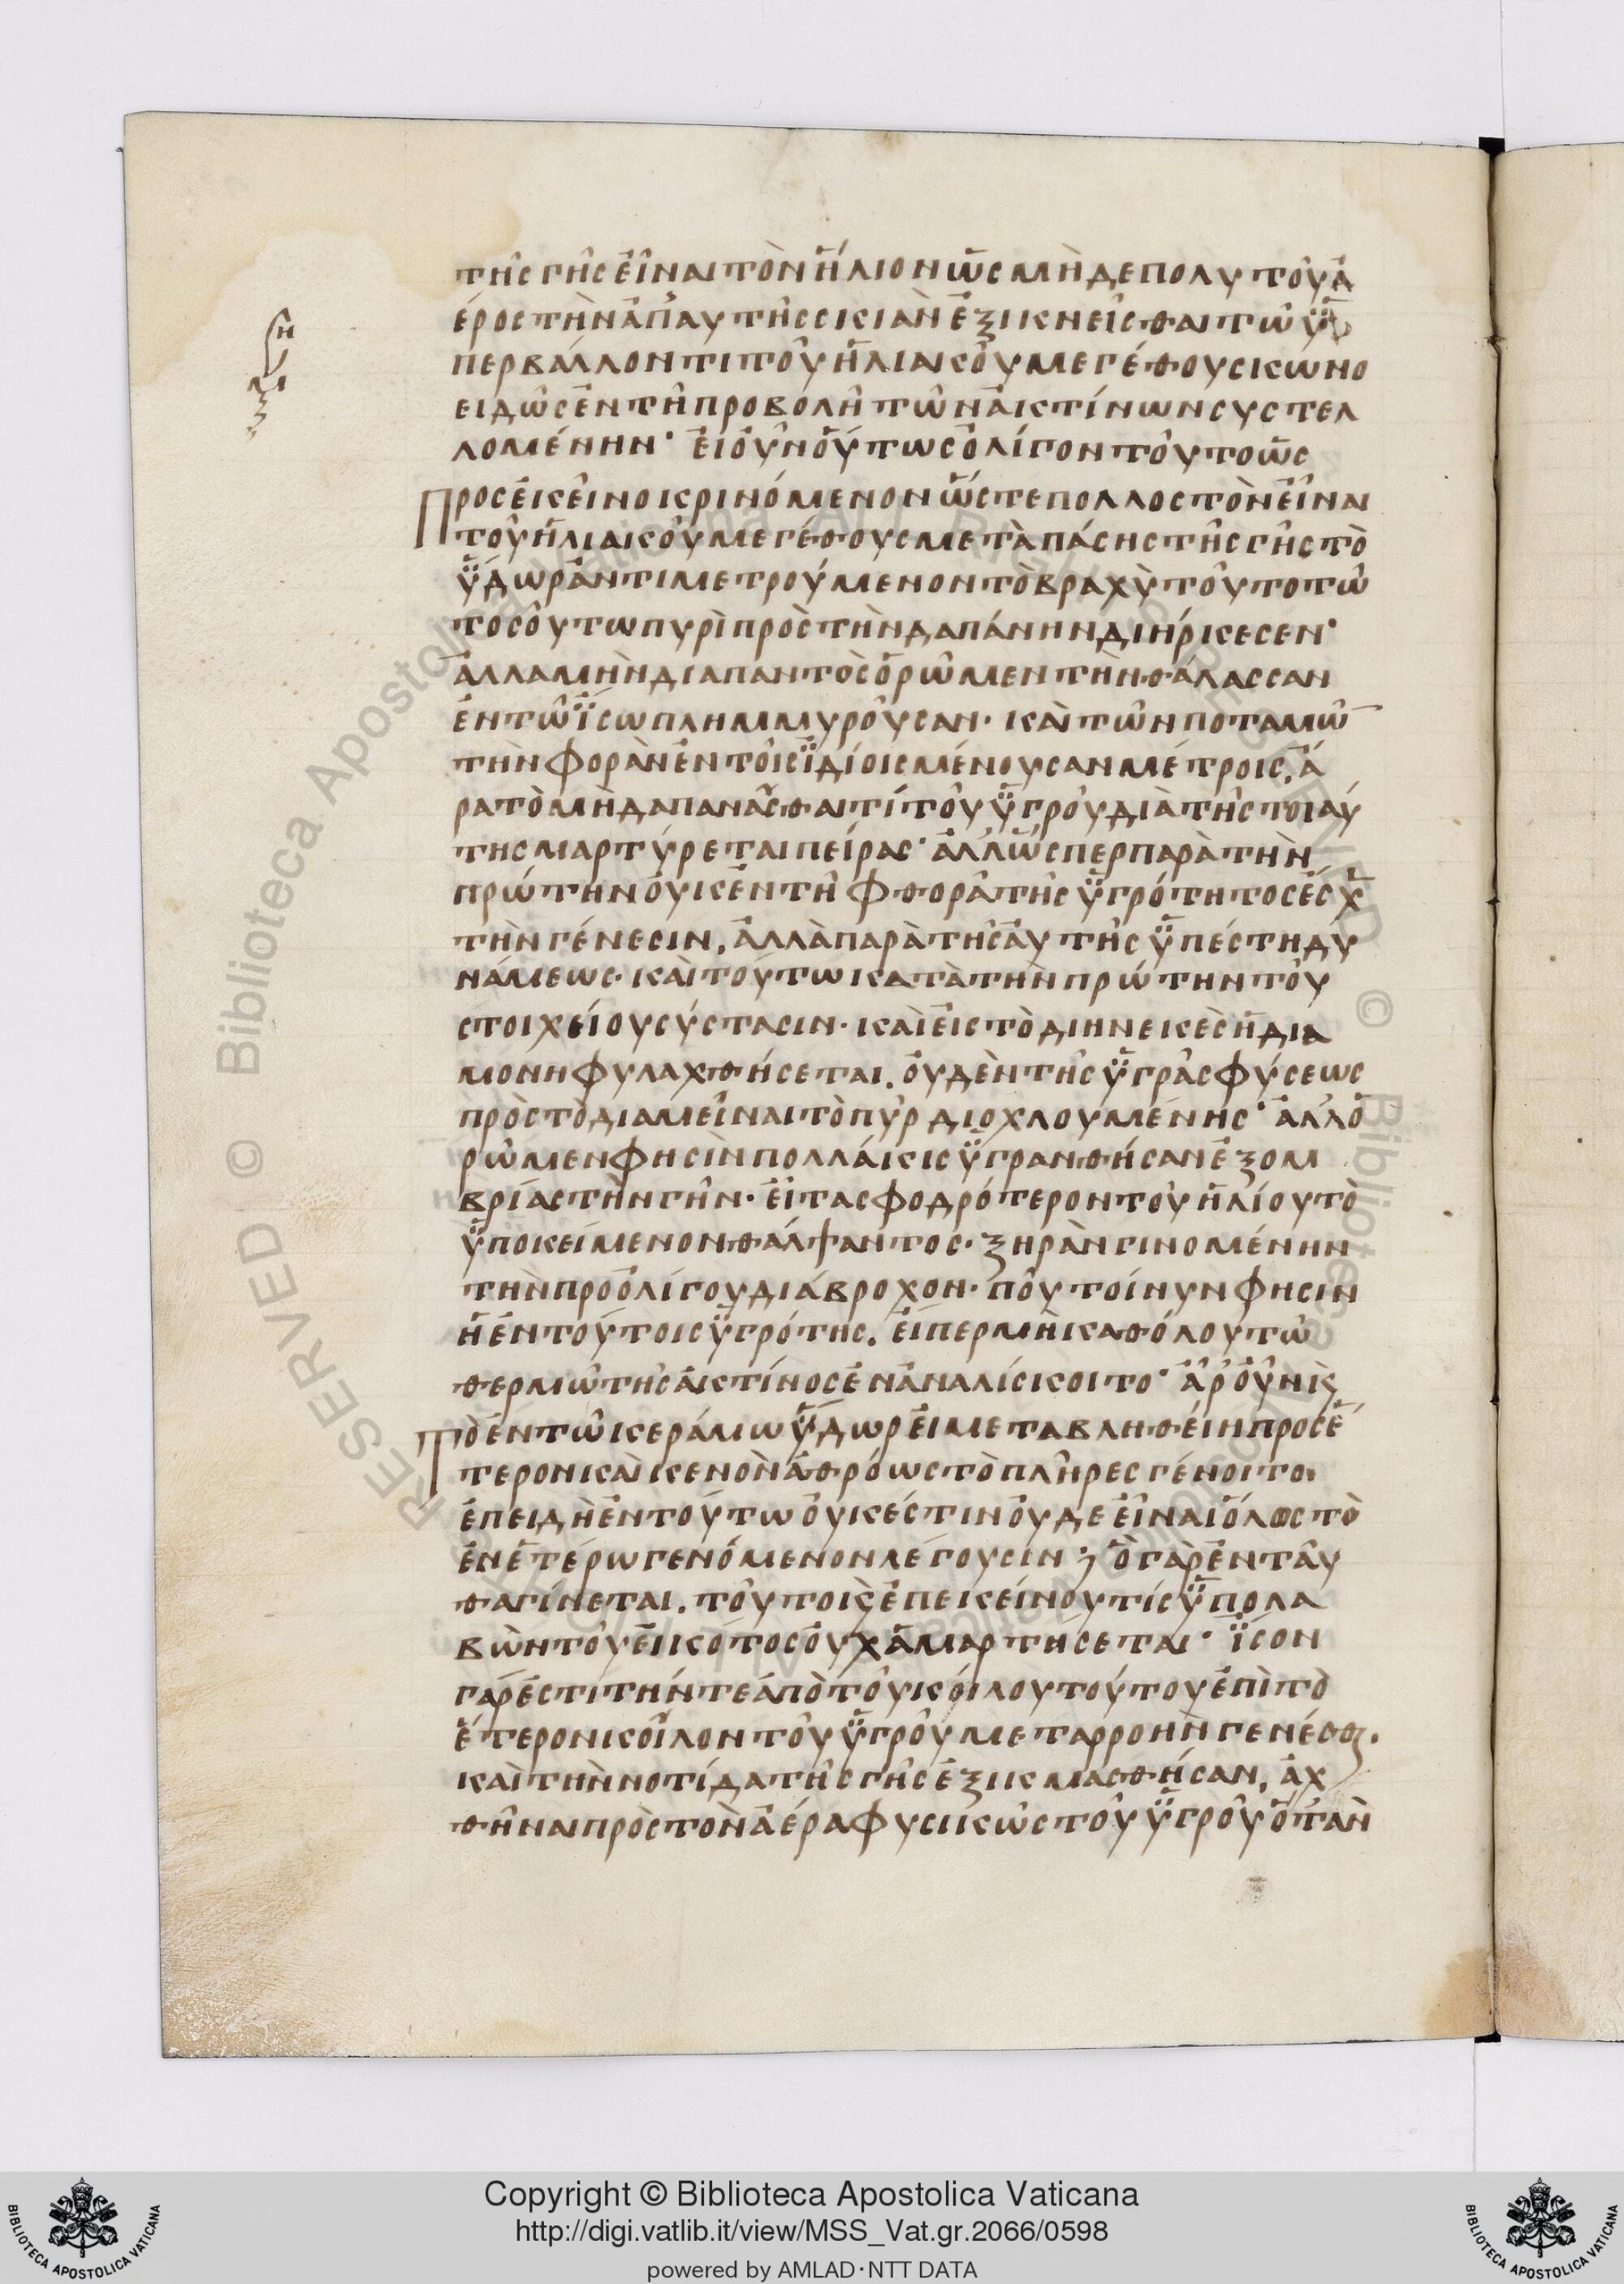 τῆς γῆς εἶναι τὸν ἥλιον ὡς μὴ δε πολυ τοῦ ἀ
έρος τὴν ἀπ' αυτῆς σκιὰν ἐξικνεῖσθαι τῷ ὑ
περβάλλοντι τοῦ ἡλιακοῦ μεγέθους κωνο
ειδῶς ἐν τῇ προβολῇ τῶν ἀκτίνων συστελ
λομένην· εἰ οὖν οὕτως ὀλίγον τοῦτο ὡς
προς ἐκεῖνο κρινόμενον ὥστε πολλοστὸν εἶναι
τοῦ ἡλιακοῦ μεγέθους μετὰ πάσης τῆς γῆς τὸ
ὕδωρ ἀντιμετρούμενον τὸ βραχὺ τοῦτο τῷ
τοσούτω πυρὶ πρὸς τὴν δαπάνην διήρκεσεν·
ἀλλα μὴν διαπαντὸς ὁρῶμεν τὴν θάλασσαν
ἐν τῷ ἴσω πλημμυροῦσαν· καὶ τῶν ποταμῶ
τὴν φορὰν ἐν τοῖς ἰδίοις μένουσαν μέτροις, ἄ
ρα τὸ μὴ δαπανᾶσθαι τί τοῦ ὑγροῦ διὰ τῆς τοιαύ
της μαρτύρεται πείρας· ἀλλ' ὥσπερ παρὰ τὴν
πρώτην οὐκ ἐν τῇ φθορᾷ τῆς ὑγρότητος ἔσχ
τὴν γένεσιν, ἀλλὰ παρὰ τῆς ἀυτῆς ὑπέστη δυ
νάμεως· καὶ τούτω κατὰ τὴν πρώτην τοῦ
στοιχείου σύστασιν· καὶ εἰς τὸ διηνεκὲς ἡ δια
μονη φυλαχθήσεται. οὐδὲν τῆς ὑγρᾶς φύσεως
πρὸς τὸ διαμεῖναι τὸ πῦρ διοχλουμένης· ἀλλ' ὁ
ρῶμεν φησὶν πολλάκις ὑγρανθήσαν ἐξ ομ
βρίας τὴν γῆν· εἶτα σφοδρότερον τοῦ ἡλίου τὸ
ὑποκείμενον θάλψαντος· ξηρὰν γινομένην
τὴν πρὸ ὀλίγου διάβροχον· ποῦ τοίνυν φησιν
ἡ ἐν τούτοις ὑγρότης. εἴπερ μὴ καθόλου τῷ
θερμῷ τῆς ἀκτίνος ἐναναλίσκοιτο· ἆρ' οὖν κ
τὸ ἐν τῷ κεράμω ὕδωρ εἰ μεταβληθείη προς ἕ
τερον καὶ κενὸν ἀθρόως τὸ πλῆρες γένοιτο·
ἐπειδὴ ἐν τούτω οὐκ έστιν οὐδε εἶναι ὅλως τὸ
ἐν ἑτέρω γενόμενον λέγουσιν; ὃ γὰρ ἐνταῦ
θα γίνεται. τοῦτο κ ἐπ' εκείνου τίς ὑπολα
βὼν τοῦ εἰκότος οὐχ ἁμαρτήσεται· ἴσον
γάρ ἐστι τήν τε ἀπὸ τοῦ κοίλου τούτου ἐπὶ τὸ
ἕτερον κοῖλον τοῦ ὑγροῦ μεταρροὴν γενέσθαι·
καὶ τὴν νοτίδα τῆς γῆς ἐξικμασθήσαν, ἀχ
θῆναι πρὸς τὸν ἀέρα φυσικῶς τοῦ ὑγροῦ ὅταν
RESERVED © Biblioteca Apostolica Vaticana
Copyright © Biblioteca Apostolica Vaticana
http://digi.vatlib.it/view/MSS_Vat.gr.2066/0598
powered by AMLAD·NTT DATA
BIBLIOTECA APOSTOLICA VATICANA
BIBLIOTECA APOSTOLICA VATICANA